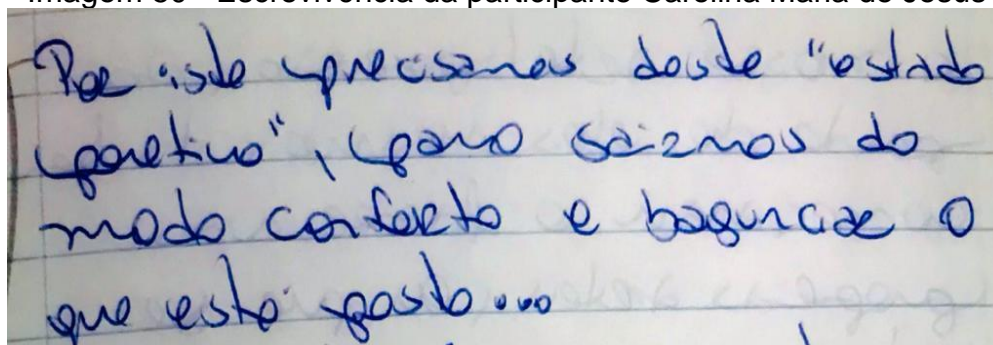 Imagem 30 - Escrevivência da participante Carolina Maria de Jesus
Por isto precisamos deste "estado
poetivo", para sairmos do
modo conforto e bagunciar o
que esta posto...